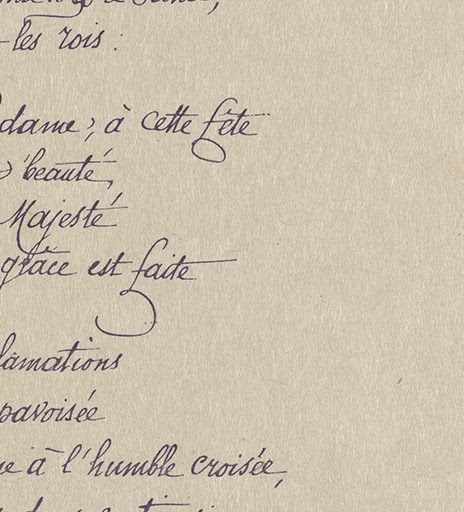 les rois :
dame, à cette fête
beauté,
Majesté
grâce est faite
lamations
pavoisée
à l'humble croisée,